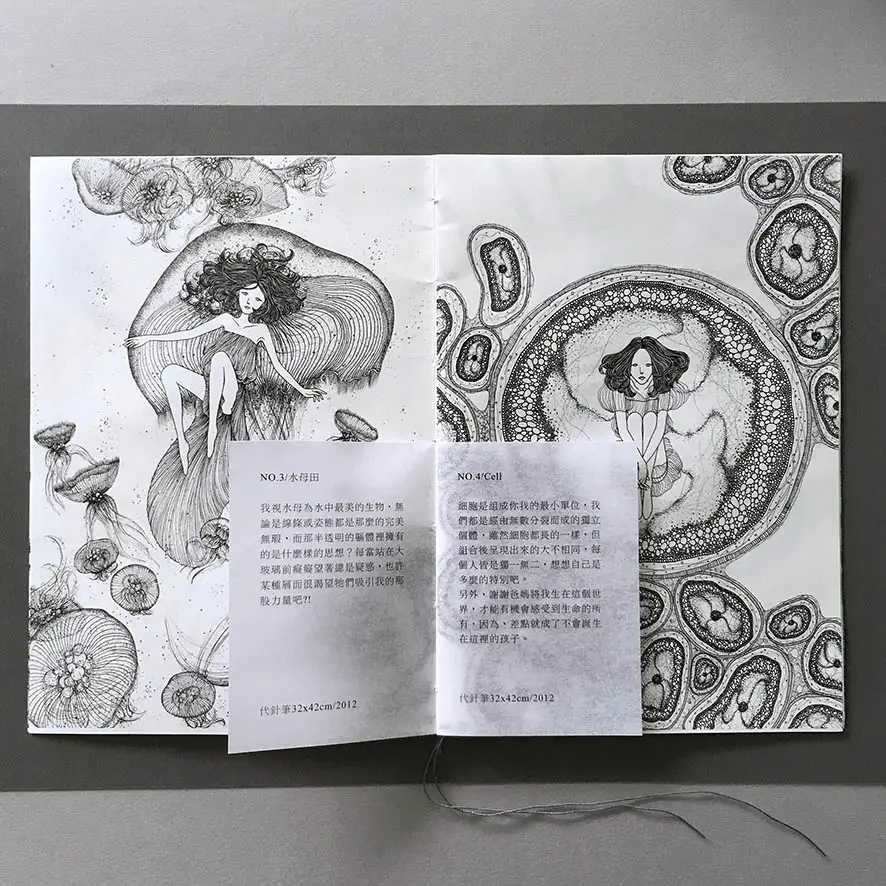 NO.3/水母田
我視水母為水中最美的生物，無
論是線條或姿態都是那麼的完美
無瑕，而那半透明的軀體裡擁有
的是什麼樣的思想？每當站在大
玻璃前癡癡望著總是疑惑，也許
某種層面很渴望牠們吸引我的那
股力量吧?!
代針筆32x42cm/2012
NO.4/Cell
細胞是組成你我的最小單位，我
們都是經由無數分裂而成的獨立
個體，雖然細胞都長的一樣，但
組合後呈現出來的大不相同，每
個人皆是獨一無二，想想自己是
多麼的特別吧。
另外，謝謝爸媽將我生在這個世
界，才能有機會感受到生命的所
有，因為，差點就成了不會誕生
在這裡的孩子。
代針筆32x42cm/2012